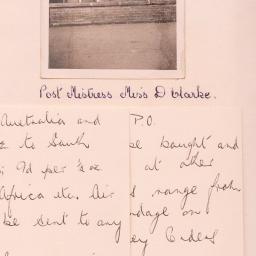 Post Mistress Miss D Clarke.
Australia and
to South
9d per ½ oz.
Africa etc. Air
be sent to any
P.O.
be bought and
at other
range from
on
Orders